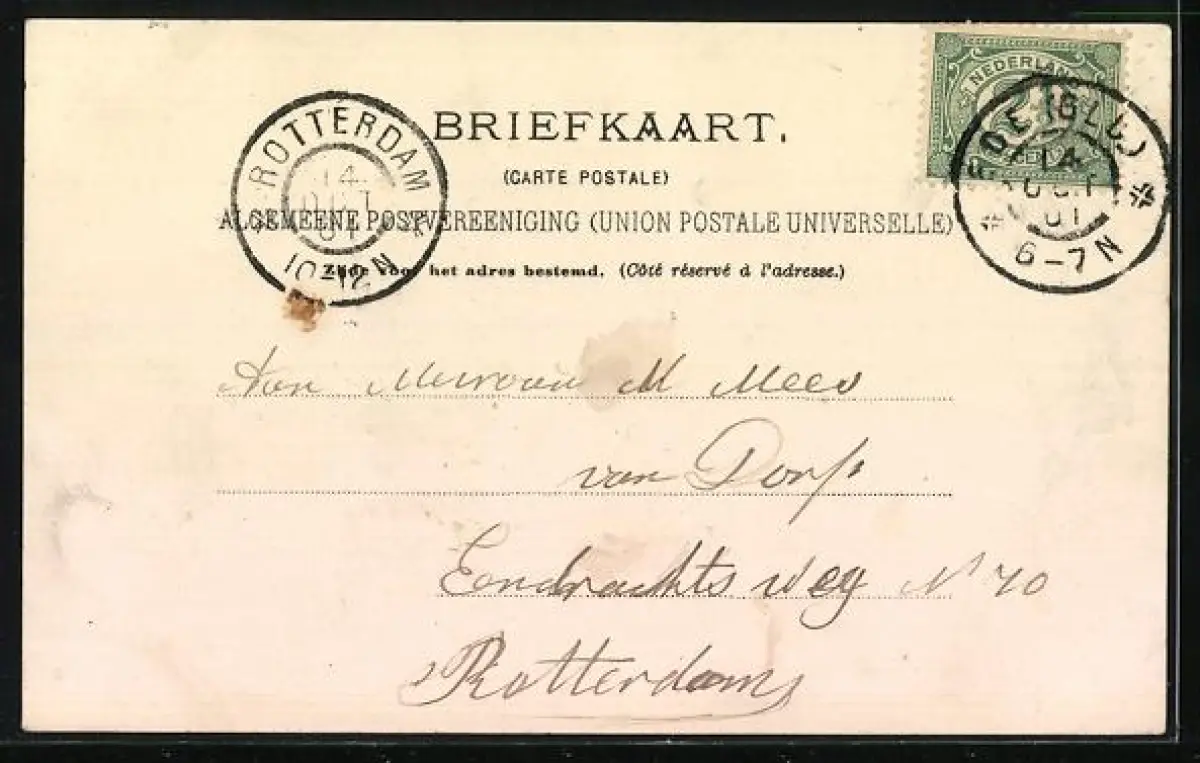 BRIEFKAART.
(CARTE POSTALE)
ALGEMEENE POSTVEREENIGING (UNION POSTALE UNIVERSELLE)
Zijde voor het adres bestemd. (Côté réservé à l'adresse.)
ROTTERDAM
14
OCT
01
10-12N
NEDERLAND
14
OCT
01
6-7N
Aan Mevrouw M Mees
van Dorp
Eendrachts weg No 70
Rotterdam